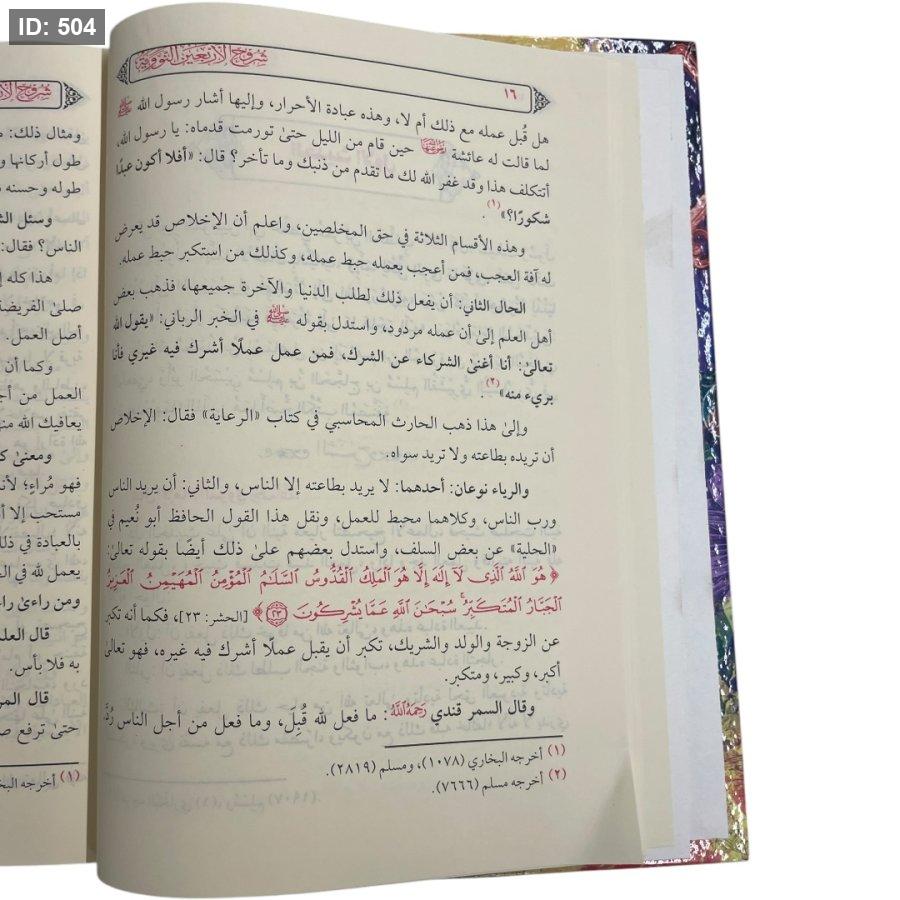 ID: 504
شروح الأربعين النووية
١٦
هل قُبل عمله مع ذلك أم لا، وهذه عبادة الأحرار، وإليها أشار رسول الله ﷺ
لما قالت له عائشة رضي الله عنها حين قام من الليل حتىٰ تورمت قدماه: يا رسول الله،
أتتكلف هذا وقد غفر الله لك ما تقدم من ذنبك وما تأخر؟ قال: «أفلا أكون عبدًا
شكورًا؟»(١).
وهذه الأقسام الثلاثة في حق المخلصين، واعلم أن الإخلاص قد يعرض
له آفة العجب، فمن أعجب بعمله حبط عمله، وكذلك من استكبر حبط عمله.
الحال الثاني: أن يفعل ذلك لطلب الدنيا والآخرة جميعها، فذهب بعض
أهل العلم إلىٰ أن عمله مردود، واستدل بقوله ﷺ في الخبر الرباني: «يقول الله
تعالىٰ: أنا أغنىٰ الشركاء عن الشرك، فمن عمل عملًا أشرك فيه غيري فأنا
بريء منه»(٢).
وإلىٰ هذا ذهب الحارث المحاسبي في كتاب «الرعاية» فقال: الإخلاص
أن تريده بطاعته ولا تريد سواه.
والرياء نوعان: أحدهما: لا يريد بطاعته إلا الناس، والثاني: أن يريد الناس
ورب الناس، وكلاهما محبط للعمل، ونقل هذا القول الحافظ أبو نُعيم في
«الحلية» عن بعض السلف، واستدل بعضهم علىٰ ذلك أيضًا بقوله تعالىٰ:
﴿هُوَ ٱللَّهُ ٱلَّذِى لَآ إِلَٰهَ إِلَّا هُوَ ٱلْمَلِكُ ٱلْقُدُّوسُ ٱلسَّلَٰمُ ٱلْمُؤْمِنُ ٱلْمُهَيْمِنُ ٱلْعَزِيزُ
ٱلْجَبَّارُ ٱلْمُتَكَبِّرُ سُبْحَٰنَ ٱللَّهِ عَمَّا يُشْرِكُونَ ٢٣﴾ [الحشر: ٢٣]، فكما أنه تكبر
عن الزوجة والولد والشريك، تكبر أن يقبل عملًا أشرك فيه غيره، فهو تعالىٰ
أكبر، وكبير، ومتكبر.
وقال السمر قندي رحمه الله: ما فعل لله قُبِلَ، وما فعل من أجل الناس رُدَّ
(١) أخرجه البخاري (١٠٧٨)، ومسلم (٢٨١٩).
(٢) أخرجه مسلم (٧٦٦٦).
شروح
ومثال ذلك:
طول أركانها
طوله وحسنه
وسئل
الناس؟ فقال:
هذا كله
صلىٰ الفريضة
أصل العمل.
وكما أن
العمل من
يعافيك الله
ومعنىٰ
فهو مُراءٍ؛
مستحب إلا
بالعبادة في
يعمل لله في
ومن راءىٰ
قال
به فلا بأس.
قال
حتىٰ ترفع
(١) أخرجه